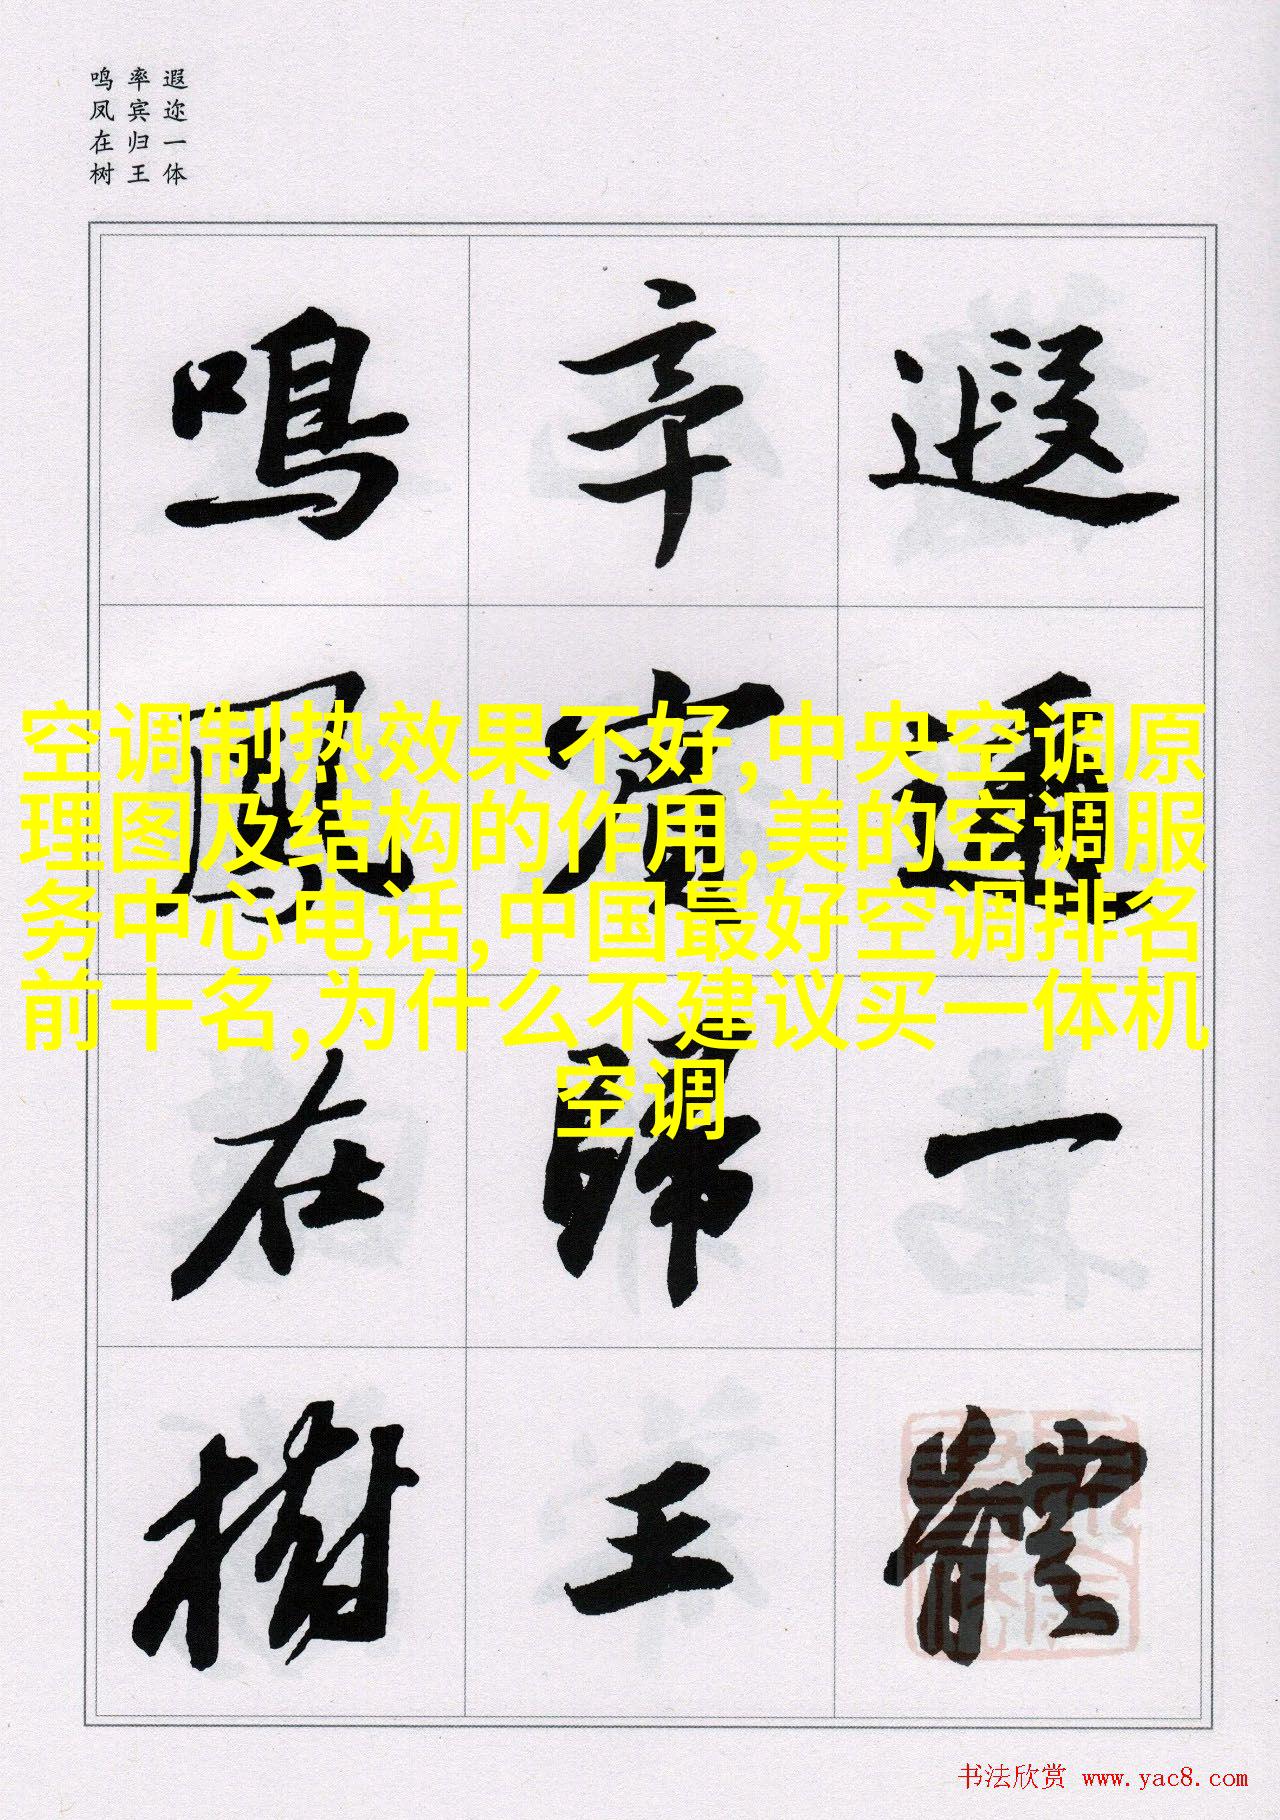 遐迩一体
率宾归王
鸣凤在树
遐邇一體
率賓歸王
鳴鳳在樹
空调制热效果不好,中央空调原
理图及结构的作用,美的空调服
务中心电话,中国最好空调排名
前十名,为什么不建议买一体机
空调
书法欣赏 www.yac8.com